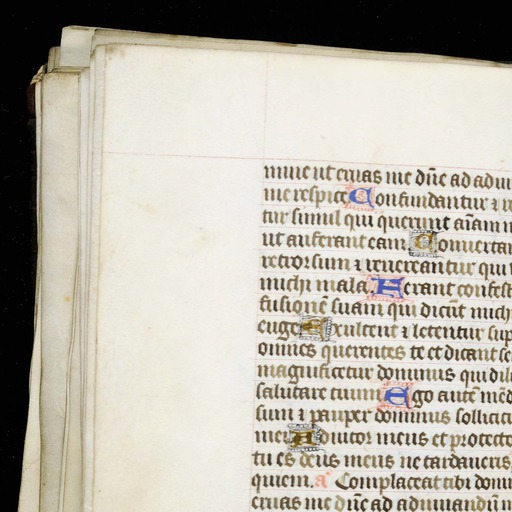 mine ut eruas me dñe ad adiu
me respice Confundantur ⁊ re
tur simul qui querunt aīam m
ut auferant eam. Conuertan
retrorsum ⁊ reuereantur qui
michi mala. Ferant confest
fusionē suam qui dicūt mich
euge Exultent ⁊ letentur sup
omnes querentes te et dicant se
magnificetur dominus qui dili
salutare tuum Ego autē mēd
sum ⁊ pauper dominus sollicit
mei Adiutor meus et protecto
tu es deus meus ne tardaueris
quiem. a Complaceat tibi domi
eruas me dñe ad adiuuandū m